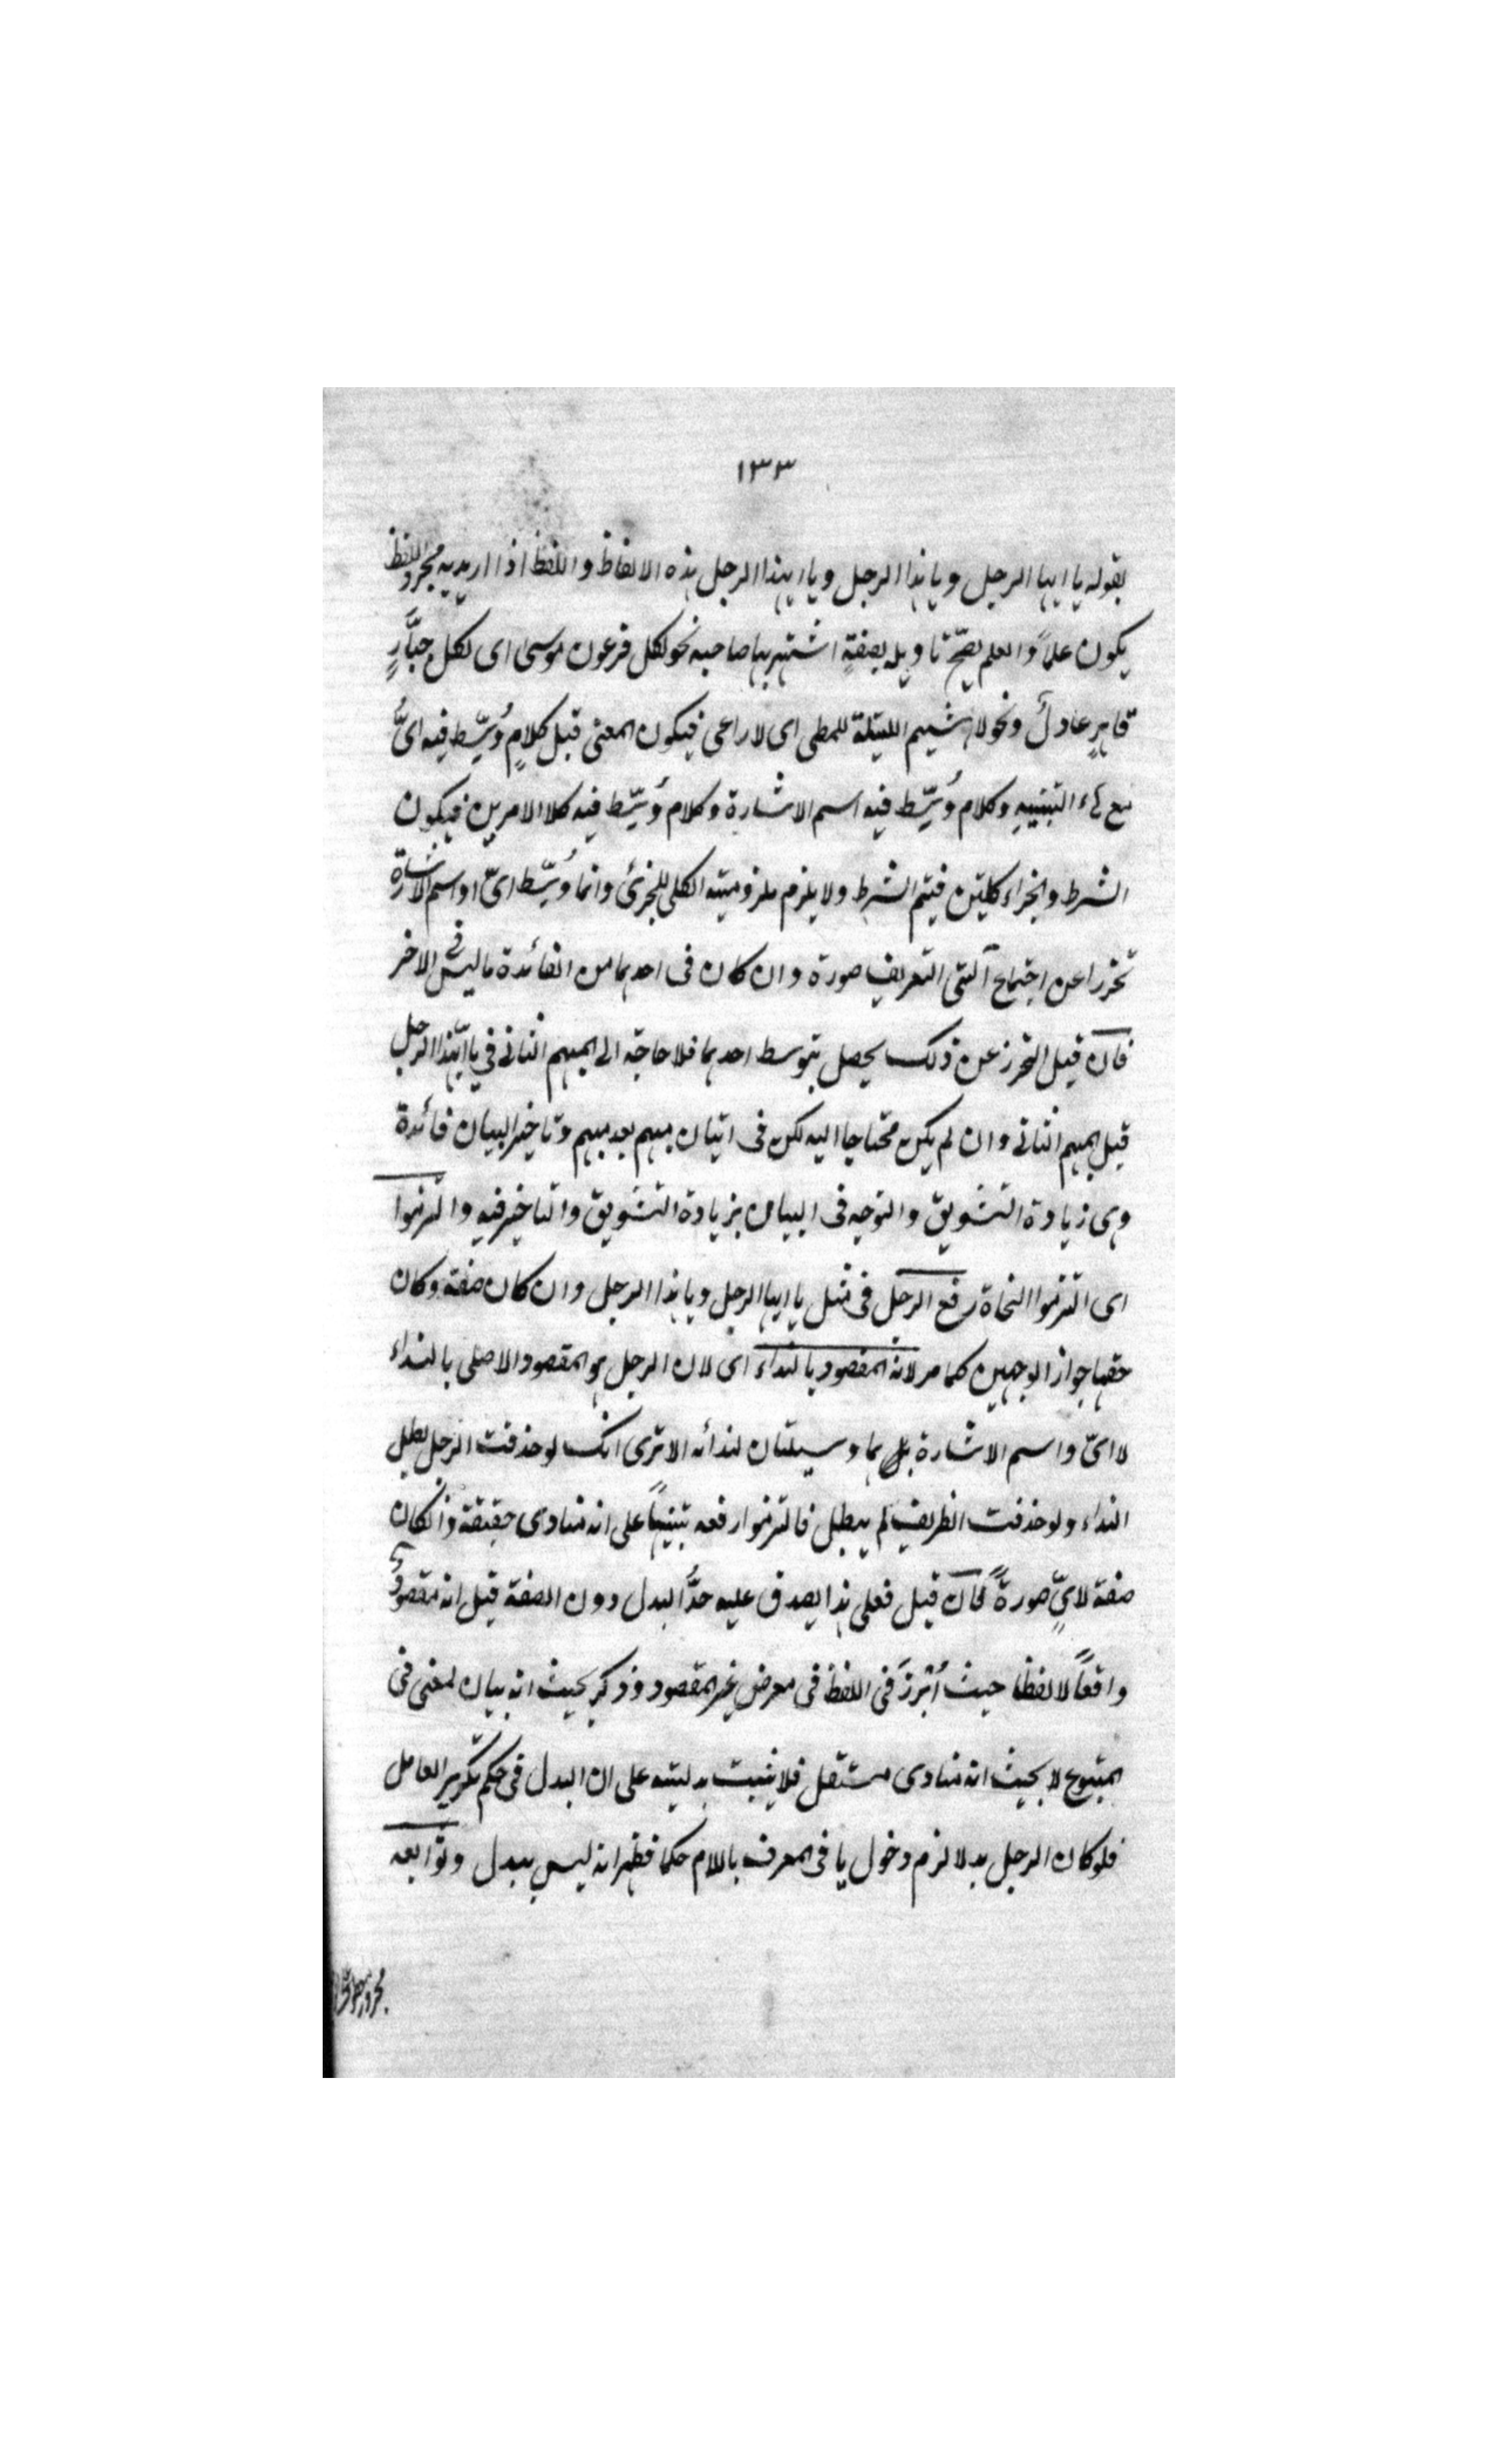 ١٣٣
بقوله يا ايها الرجل ويا هذا الرجل ويا ايهذا الرجل هذه الالفاظ واللفظ اذا اريد به مجرد اللفظ
يكون علماً والعلم يصحّ تاويله بصفةٍ اشتهر بها صاحبه نحو لكل فرعون موسى اى لكل جبّارٍ
قاهرٍ عادلٌ ونحو لا هيثم الليلة للمطى اى لا راعى فيكون المعنى قيل كلامٍ وُسّط فيه اىُّ
مع هاء التنبيهِ وكلام وُسّط فيه اسم الاشارة وكلام وُسّط فيه كلا الامرين فيكون
الشرط والجزاء كليتين فيتم الشرط ولا يلزم ملزومية الكلى للجزئ وانما وُسّط اىّ او اسم الاشارة
تحرزا عن اجتماع آلتى التعريف صورة وان كان فى احدهما من الفائدة ما ليس فى الاخر
فان قيل التحرز عن ذلك يحصل بتوسط احدهما فلا حاجة الى المبهم الثانى فى يا ايّهذا الرجل
قيل المبهم الثانى وان لم يكن محتاجا اليه لكن فى اتيان مبهم بعد مبهم وتاخير البيان فائدة
وهى زيادة التشويق والتوجه فى البيان بزيادة التشويق والتاخير فيه والتزموا
اى التزموا النحاة رفع الرجل فى مثل يا ايها الرجل ويا هذا الرجل وان كان صفة وكان
حقها جواز الوجهين كما مر لانه المقصود بالنداء اى لان الرجل هو المقصود الاصلى بالنداء
لا اىّ واسم الاشارة بل هما وسيلتان لندائه الا ترى انك لو حذفت الرجل بطل
النداء ولو حذفت الظريف لم يبطل فالتزموا رفعه تنبيهاً على انه منادى حقيقة وان كان
صفة لاىٍّ صورةً فان قيل فعلى هذا يصدق عليه حدُّ البدل دون الصفة قيل انه مقصودٌ
واقعاً لا لفظا حيث أُبرزَ فى اللفظ فى معرض غير المقصود وذكر بحيث انه بيان لمعنى فى
المتبوع لا بحيث انه منادى مستقل فلا يثبت بدليته على ان البدل فى حكم تكرير العامل
فلو كان الرجل بدلا لزم دخول يا فى المعرف باللام حكما فظهر انه ليس ببدل وتوابعه